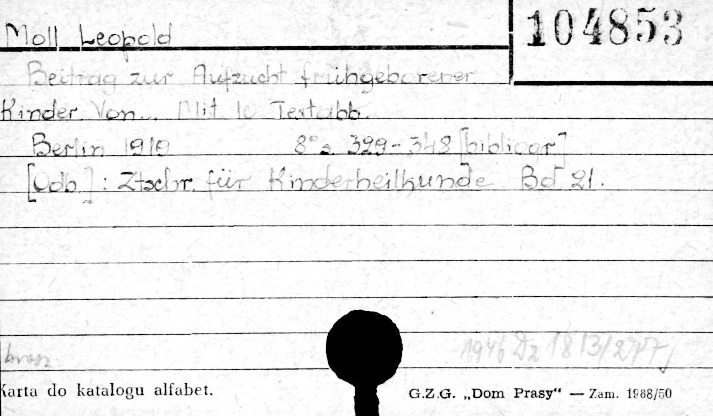 Moll Leopold
104853
Beitrag zur Aufzucht frühgeborener
Kinder Von... Mit 10 Textabb.
Berlin 1919 8° s. 329-348 [bibliogr.]
[Odb.]: Ztschr. für Kinderheilkunde Bd 21.
1946 Dz 1813/277
brosz
Karta do katalogu alfabet.
G.Z.G. „Dom Prasy“ — Zam. 1988/50